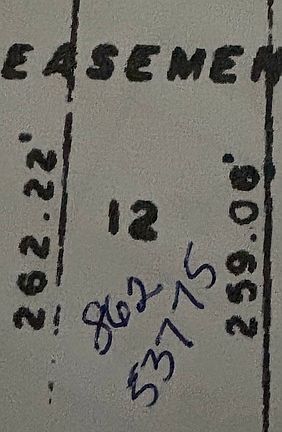 EASEMEN
262.22'
12
259.06'
862
53775